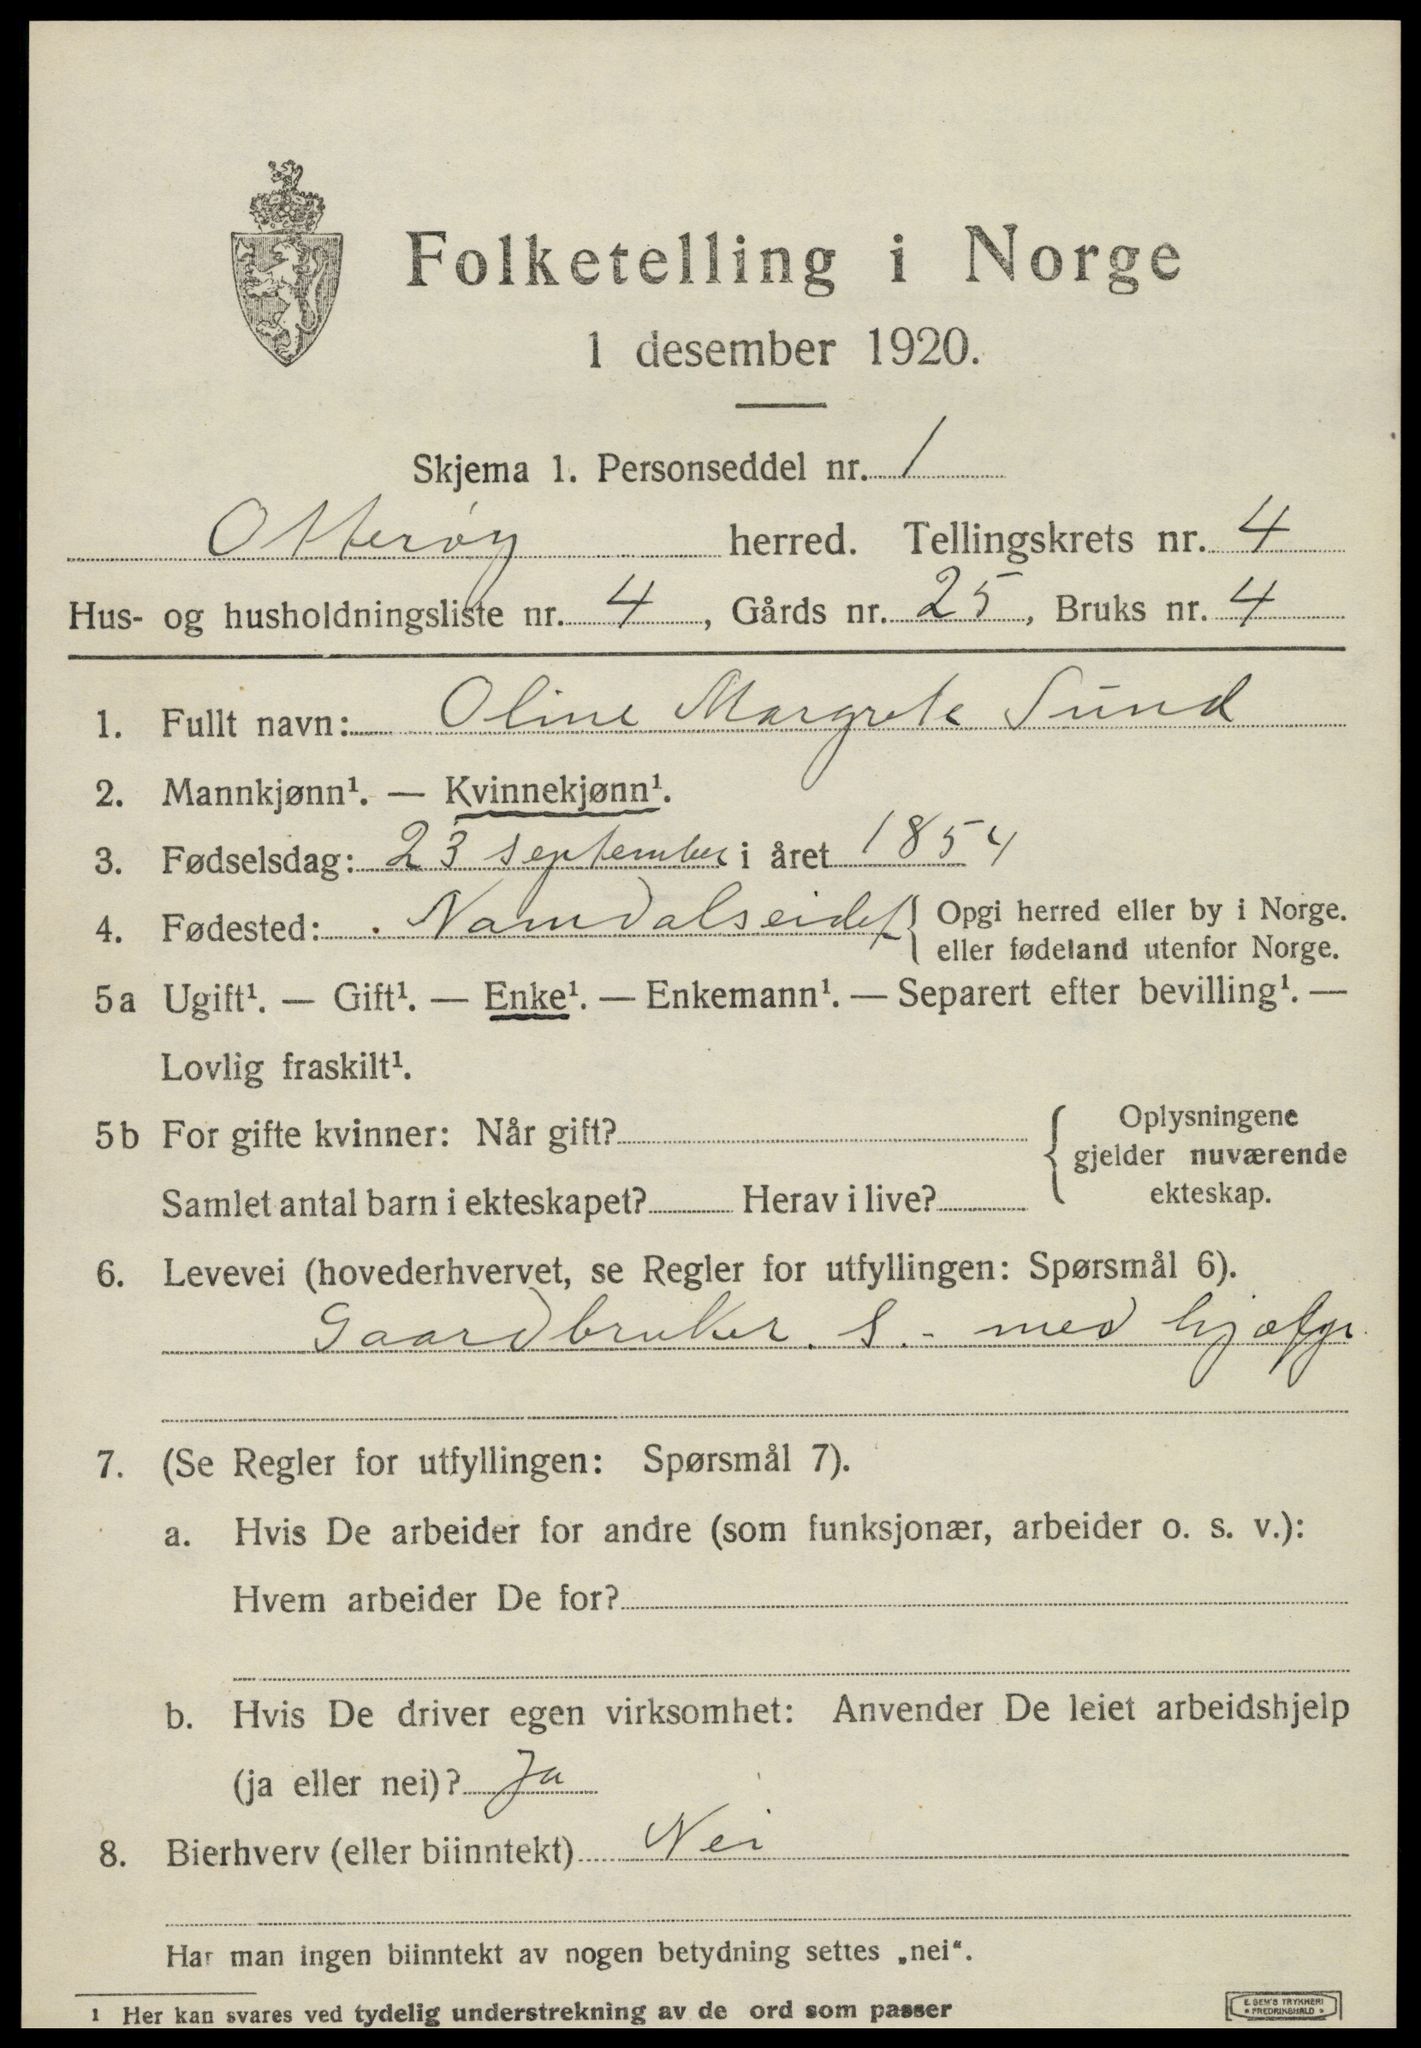 Folketelling i Norge
1 desember 1920.
Skjema 1. Personseddel nr. 1
Otterøy herred. Tellingskrets nr. 4
Hus- og husholdningsliste nr. 4, Gårds nr. 25, Bruks nr. 4
1. Fullt navn: Oline Margrete Sund
2. Mannkjønn¹. — Kvinnekjønn¹.
3. Fødselsdag: 23 september i året 1854
4. Fødested: Namdalseidet { Opgi herred eller by i Norge.
eller fødeland utenfor Norge.
5a Ugift¹. — Gift¹. — Enke¹. — Enkemann¹. — Separert efter bevilling¹. —
Lovlig fraskilt¹.
5b For gifte kvinner: Når gift?
Samlet antal barn i ekteskapet? Herav i live?
{ Oplysningene
gjelder nuværende
ekteskap.
6. Levevei (hovederhvervet, se Regler for utfyllingen: Spørsmål 6).
Gaardbruker. S. - med
7. (Se Regler for utfyllingen: Spørsmål 7).
a. Hvis De arbeider for andre (som funksjonær, arbeider o. s. v.):
Hvem arbeider De for?
b. Hvis De driver egen virksomhet: Anvender De leiet arbeidshjelp
(ja eller nei)? Ja
8. Bierhverv (eller biinntekt) Nei
Har man ingen biinntekt av nogen betydning settes „nei“.
1 Her kan svares ved tydelig understrekning av de ord som passer
E. SEM'S TRYKKERI
• FREDRIKSHALD •